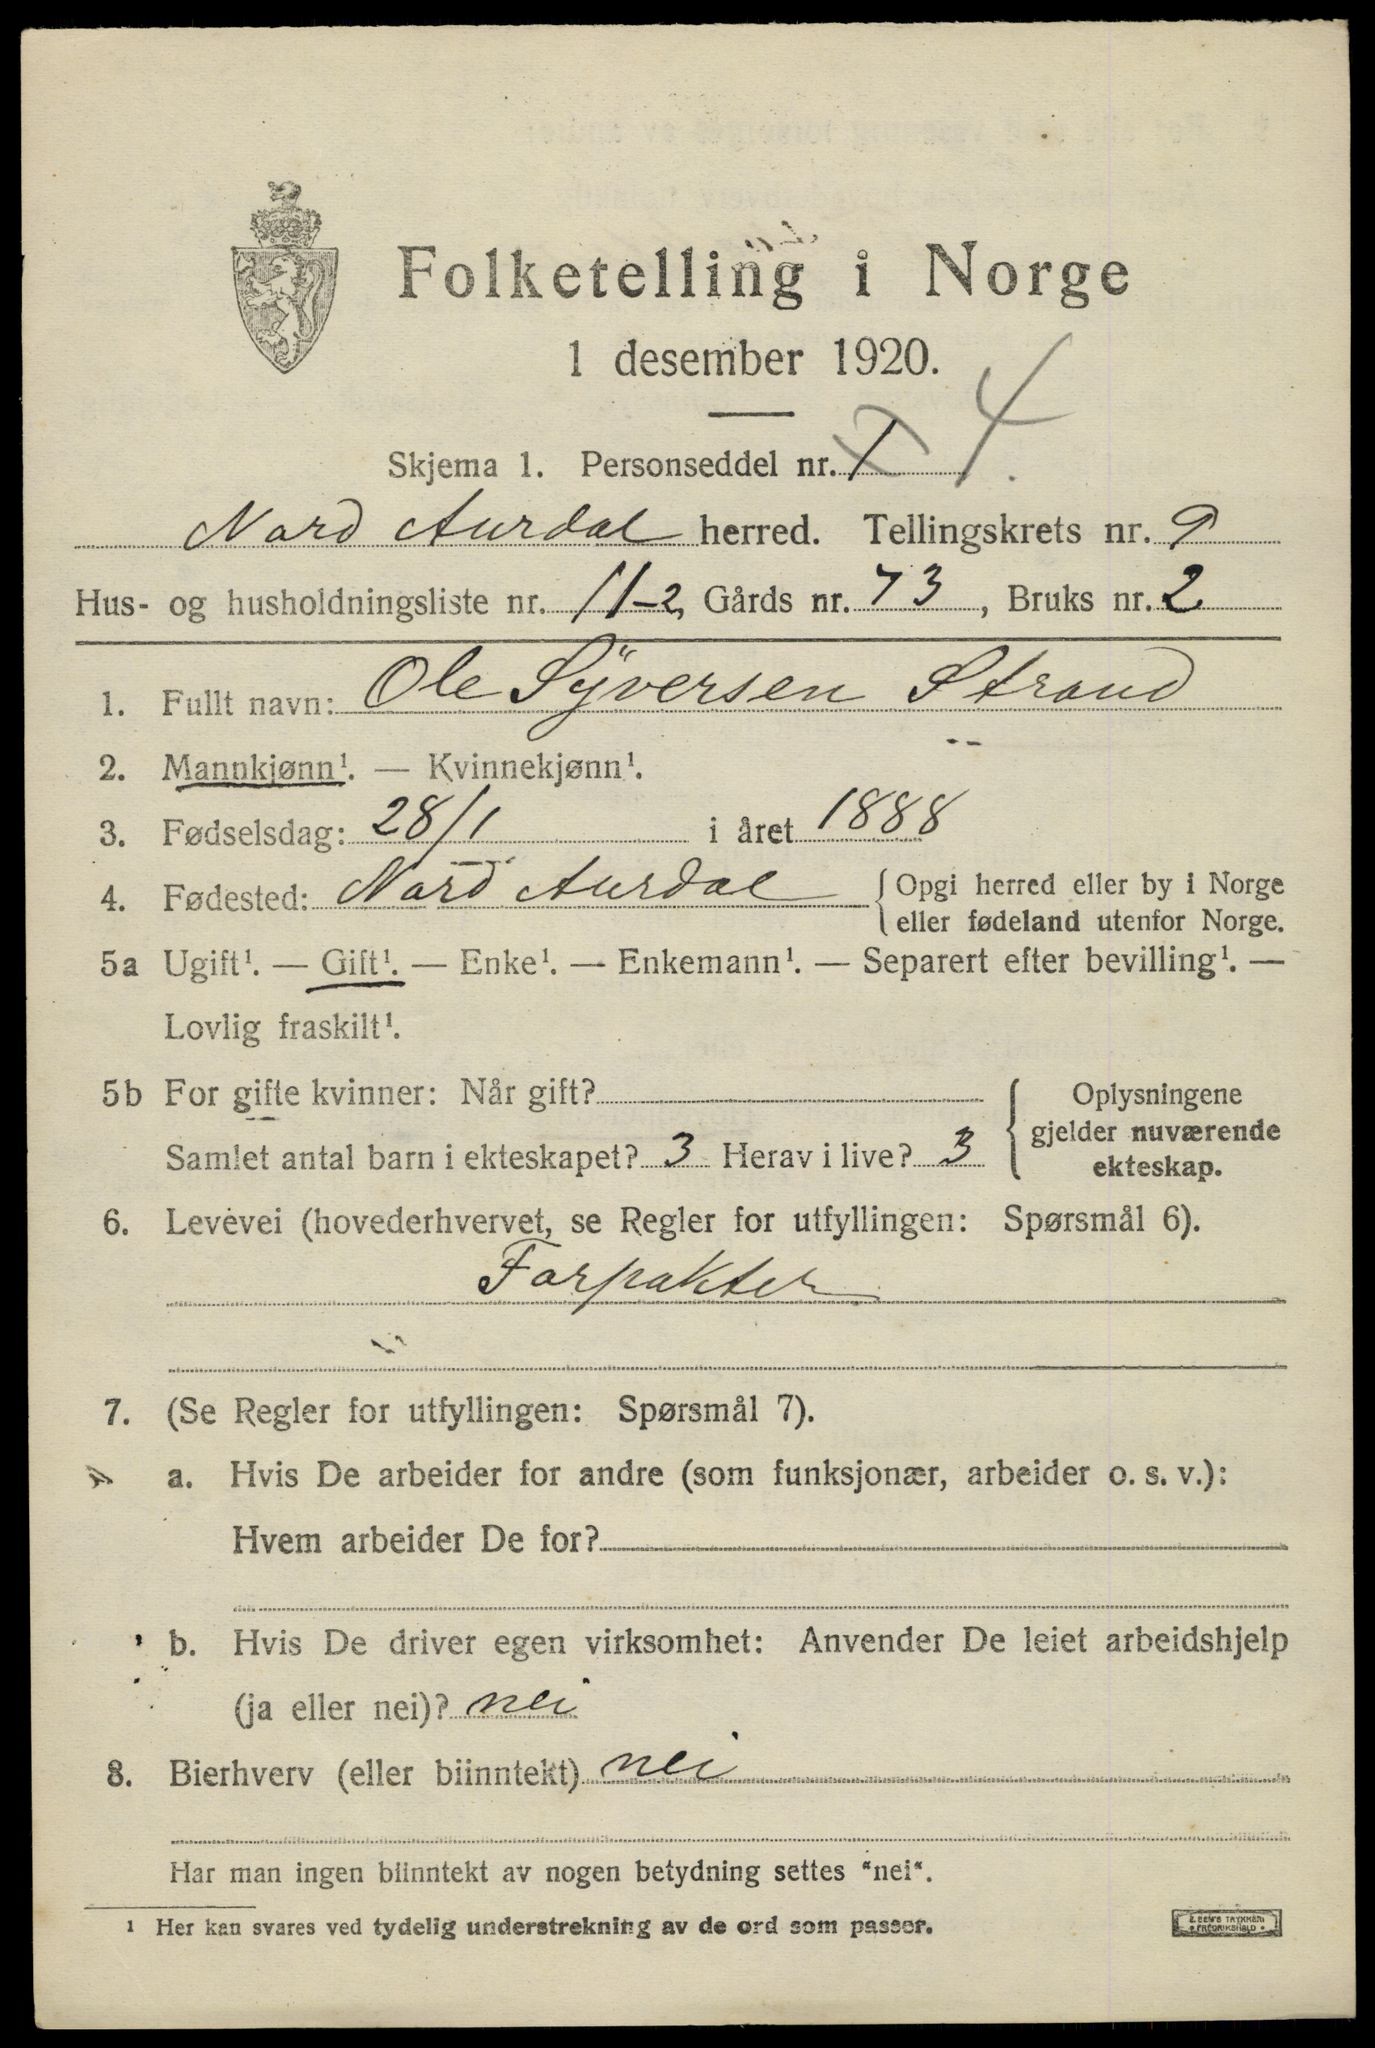 Folketelling i Norge
1 desember 1920.
Skjema 1. Personseddel nr. 1 4.
Nord Aurdal herred. Tellingskrets nr. 9
Hus- og husholdningsliste nr. 11-2, Gårds nr. 73, Bruks nr. 2
1. Fullt navn: Ole Syversen Strand
2. Mannkjønn¹. — Kvinnekjønn¹.
3. Fødselsdag: 28/1 i året 1888
4. Fødested: Nord Aurdal { Opgi herred eller by i Norge
eller fødeland utenfor Norge.
5a Ugift¹. — Gift¹. — Enke¹. — Enkemann¹. — Separert efter bevilling¹. —
Lovlig fraskilt¹.
5b For gifte kvinner: Når gift?
Samlet antal barn i ekteskapet? 3 Herav i live? 3
{ Oplysningene
gjelder nuværende
ekteskap.
6. Levevei (hovederhvervet, se Regler for utfyllingen: Spørsmål 6).
Forpakter
7. (Se Regler for utfyllingen: Spørsmål 7).
a. Hvis De arbeider for andre (som funksjonær, arbeider o. s. v.):
Hvem arbeider De for?
b. Hvis De driver egen virksomhet: Anvender De leiet arbeidshjelp
(ja eller nei)? nei
8. Bierhverv (eller biinntekt) nei
Har man ingen biinntekt av nogen betydning settes "nei".
¹ Her kan svares ved tydelig understrekning av de ord som passer.